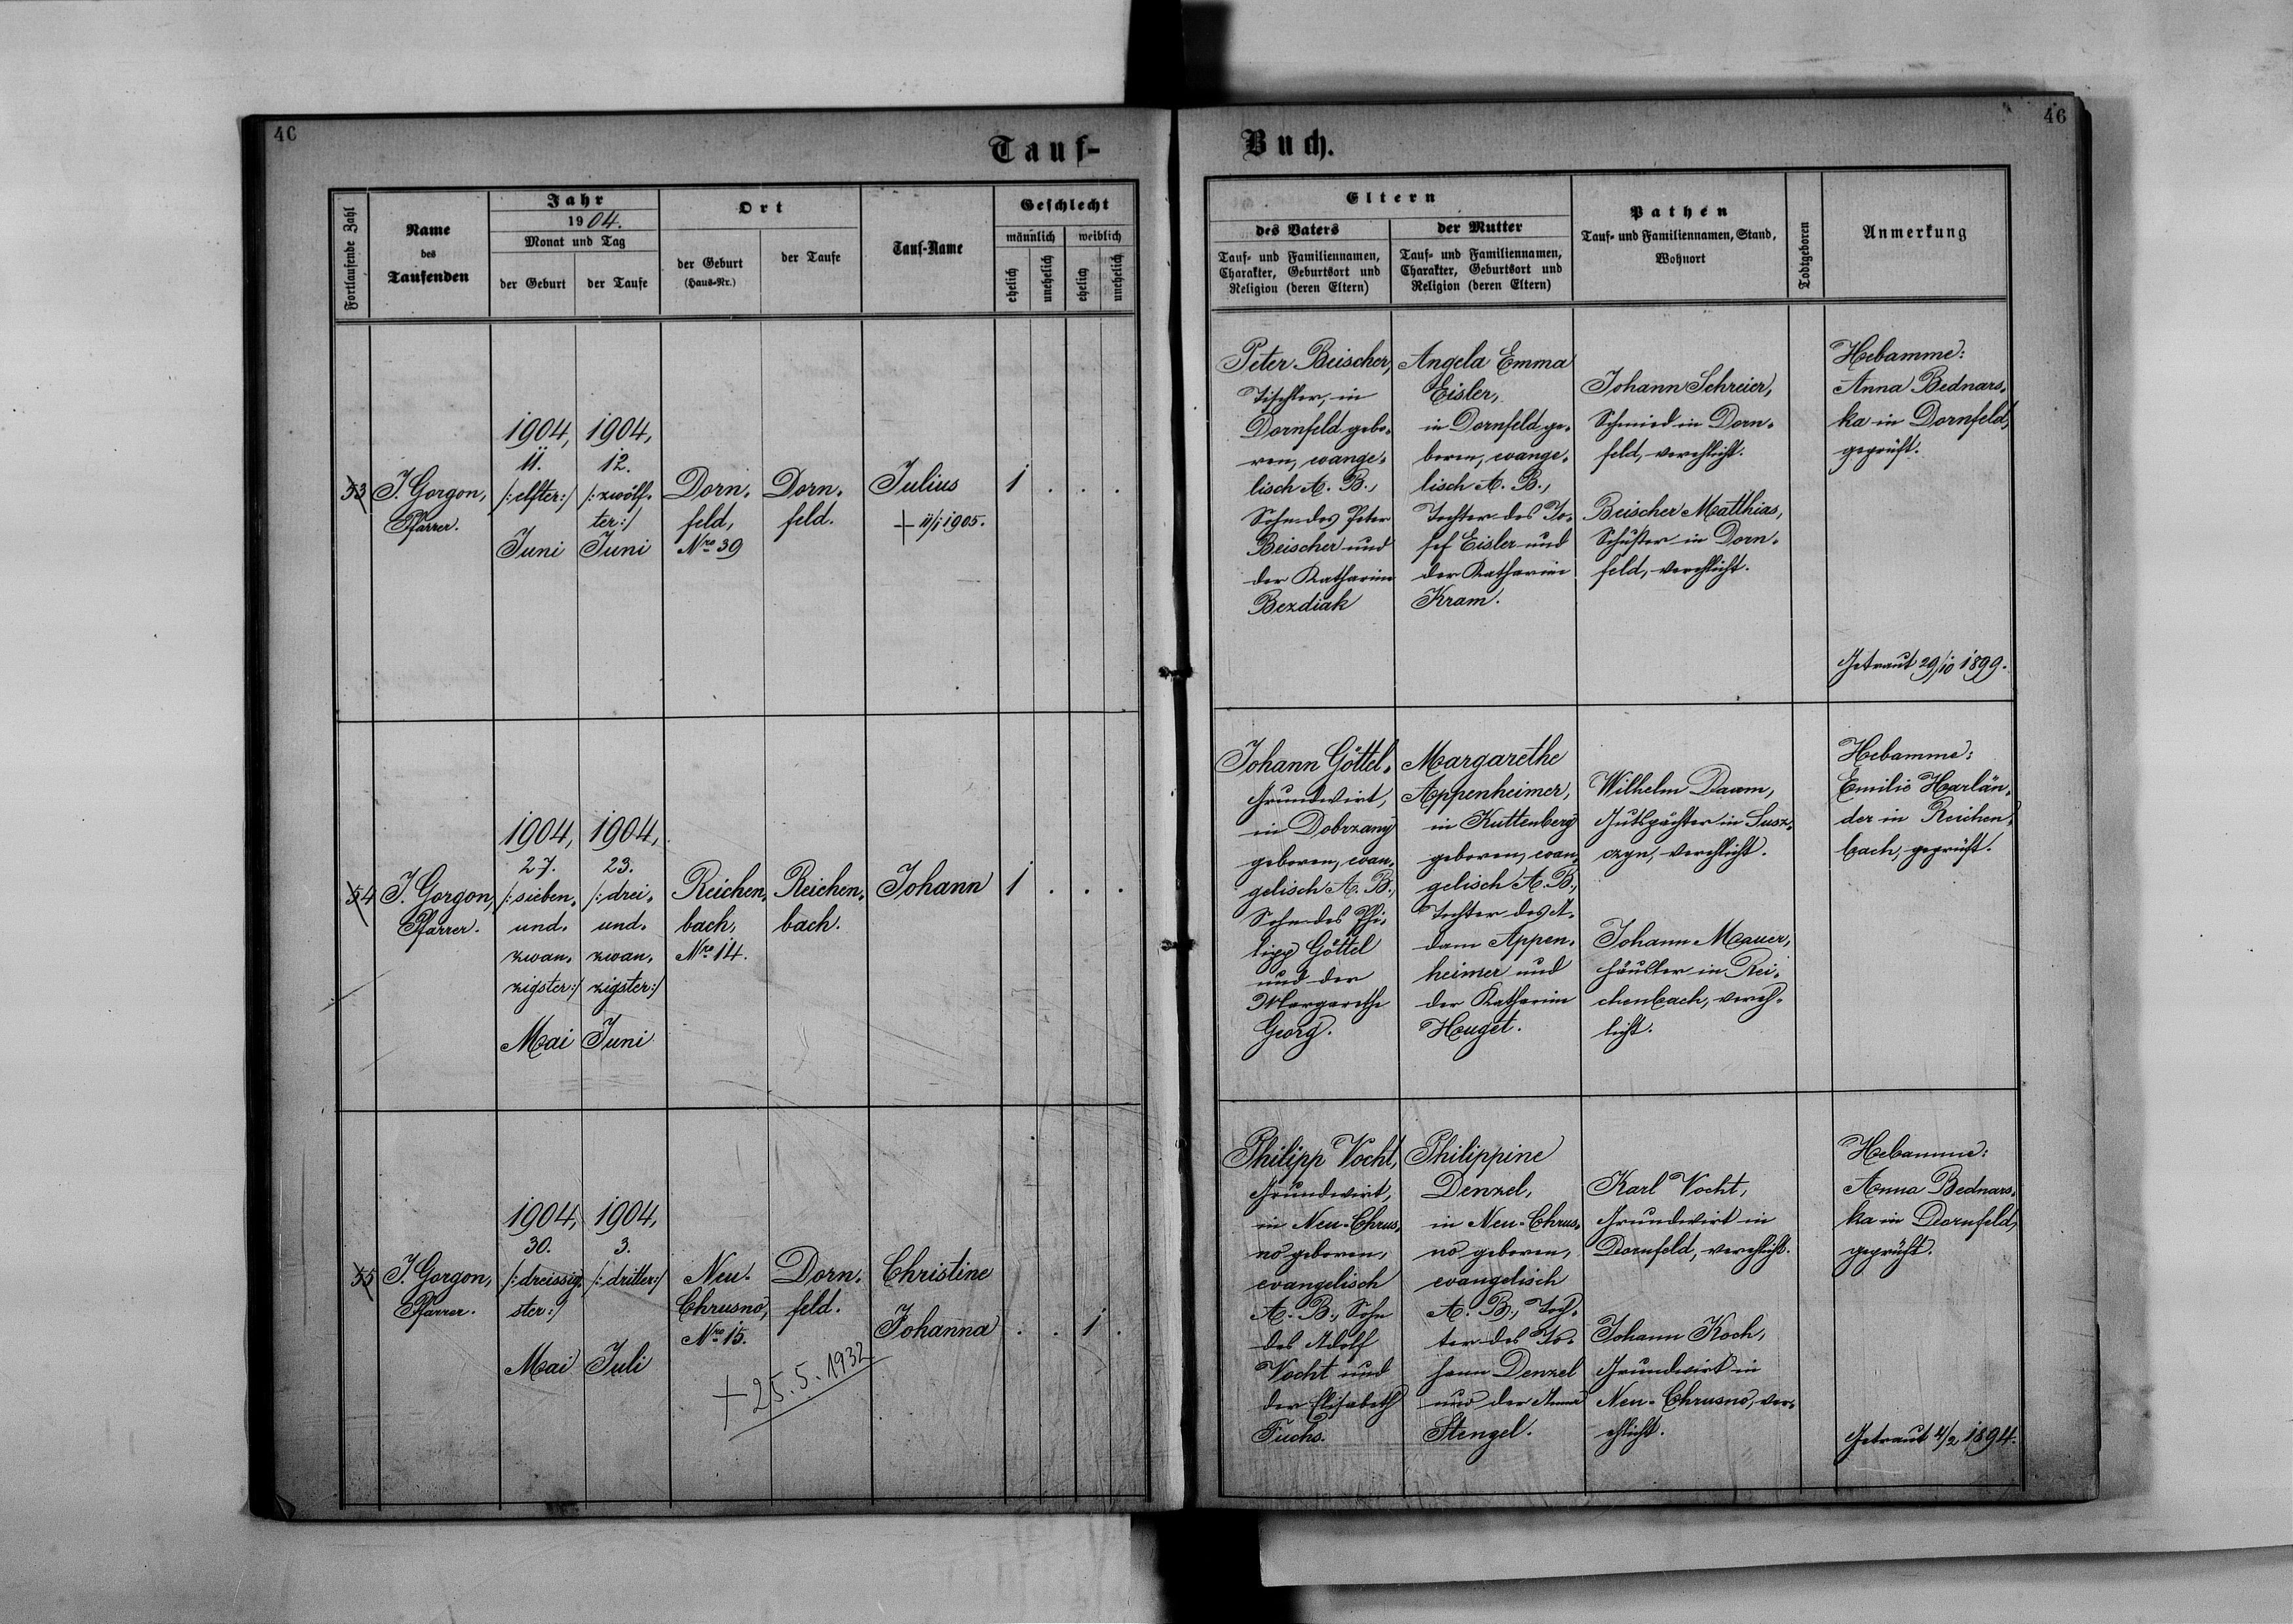 46
Tauf-
Fortlaufende Zahl
Name
des
Taufenden
Jahr
1904.
Monat und Tag
der Geburt
der Taufe
Ort
der Geburt
(Haus-Nr.)
der Taufe
Tauf-Name
Geschlecht
männlich
weiblich
ehelich
unehelich
ehelich
unehelich
53
J. Gorgon,
Pfarrer.
1904,
11.
/:elfter:/
Juni
1904,
12.
/:zwölf-
ter:/
Juni
Dorn-
feld,
Nro 39
Dorn-
feld.
Julius
+ 11/1 1905.
1 . . .
54
J. Gorgon,
Pfarrer.
1904,
27.
/:sieben-
und-
zwan-
zigster:/
Mai
1904,
23.
/:drei-
und-
zwan-
zigster:/
Juni
Reichen-
bach,
Nro 14.
Reichen-
bach.
Johann
1 . . .
55
J. Gorgon,
Pfarrer.
1904,
30.
/:dreissig-
ster:/
Mai
1904,
3.
/:dritter:/
Juli
Neu-
Chrusno,
Nro 15.
Dorn-
feld.
Christine
Johanna
. . 1 .
+ 25.5.1932
Buch.
46
Eltern
des Vaters
Tauf- und Familiennamen,
Charakter, Geburtsort und
Religion (deren Eltern)
der Mutter
Tauf- und Familiennamen,
Charakter, Geburtsort und
Religion (deren Eltern)
Pathen
Tauf- und Familiennamen, Stand,
Wohnort
Todtgeboren
Anmerkung
Peter Beischer,
Tischler, in
Dornfeld gebo-
ren, evange-
lisch A. B.,
Sohn des Peter
Beischer und
der Katharine
Bezdiak
Angela Emma
Eisler,
in Dornfeld ge-
boren, evange-
lisch A. B.,
Tochter des Jo-
sef Eisler und
der Katharine
Kram.
Johann Schreier,
Schmied in Dorn-
feld, verehlicht.
Beischer Matthias,
Schuster in Dorn-
feld, verehlicht.
Hebamme:
Anna Bednars-
ka in Dornfeld,
geprüft.
Getraut 29/10 1899.
Johann Göttel,
Grundwirt,
in Dobrzany
geboren, evan-
gelisch A. B.,
Sohn des Phi-
lipp Göttel
und der
Margarethe
Georg.
Margarethe
Appenheimer,
in Kuttenberg
geboren, evan-
gelisch A. B.,
Tochter des A-
dam Appen-
heimer und
der Katharine
Houget.
Wilhelm Daum,
Gutspächter in Susz-
czyn, verehlicht.
Johann Mauer,
Häusler in Rei-
chenbach, vereh-
licht.
Hebamme:
Emilie Harlän-
der in Reichen-
bach, geprüft.
Philipp Vocht,
Grundwirt,
in Neu-Chrus-
no geboren,
evangelisch
A. B., Sohn
des Adolf
Vocht und
der Elisabeth
Fuchs.
Philippine
Denzel,
in Neu-Chrus-
no geboren,
evangelisch
A. B., Toch-
ter des Jo-
hann Denzel
und der Anna
Stengel.
Karl Vocht,
Grundwirt in
Dornfeld, verehlicht.
Johann Koch,
Grundwirt in
Neu-Chrusno, ver-
ehlicht.
Hebamme:
Anna Bednars-
ka in Dornfeld,
geprüft.
Getraut 4/2 1894.